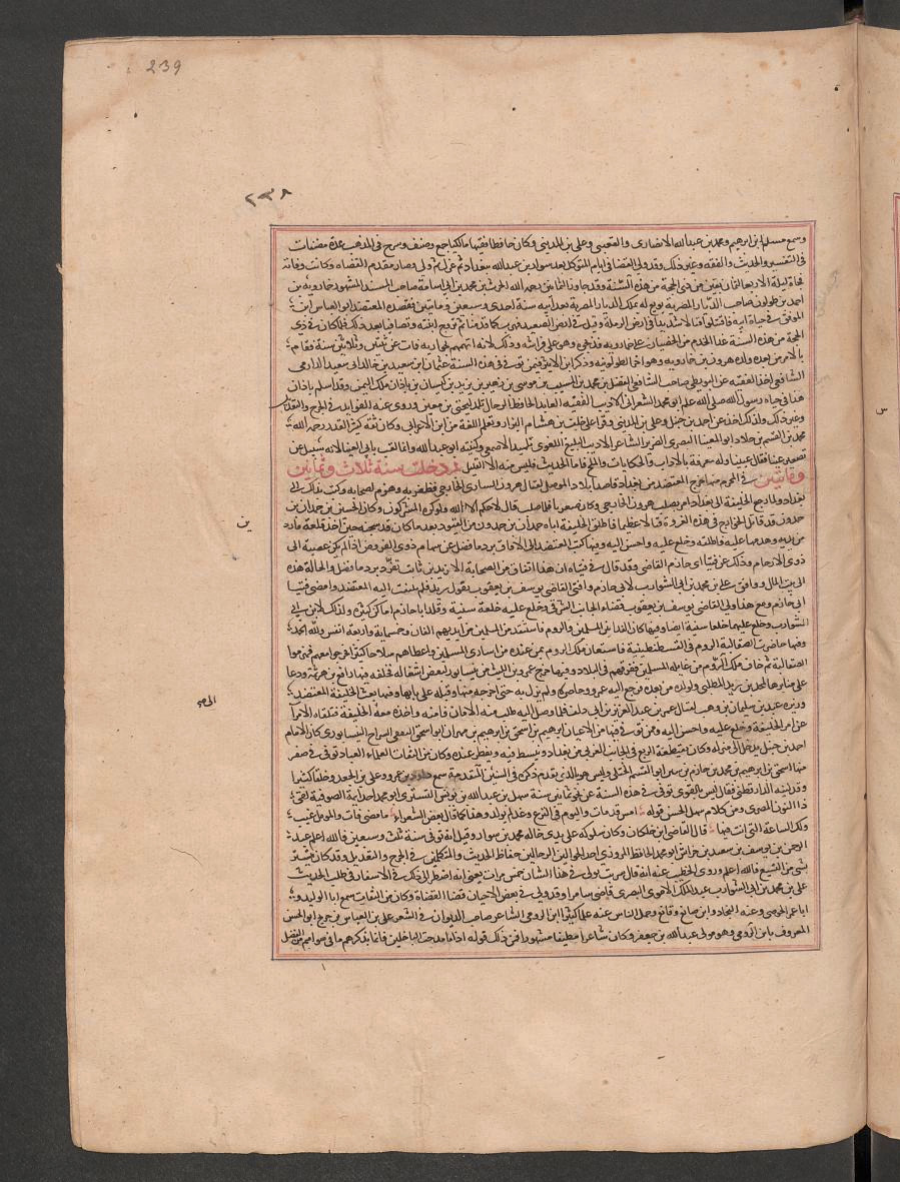 239
٢٣٨
وسمع مسلم بن ابرهيم ومحمد بن عبد الله الانصارى والقعنبى وعلى بن المدينى وكان حافظا فقيها مالكيا جمع وصنف وشرح فى المذهب عدة مصنفات
فى التفسير والحديث والفقه وغير ذلك وقد ولى القضا فى ايام المتوكل بعد سوار بن عبد الله ببغداد ثم عزل ثم ولى وصار مقدم القضاه وكانت وفاته
فجاة ليلة الاربعا لثمان بقين من ذى الحجة من هذه السنة وقد جاوز الثمانين رحمه الله الحرث بن محمد بن ابى اسامة صاحب المسند المشهور خمارويه بن
احمد بن طولون صاحب الديار المصرية بويع له بملك الديار المصرية بعد ابيه سنة احدى وسبعين وماتين فقصده المعتضد ابو العباس ابن
الموفق فى حياة ابيه فاقتتلوا قتالا شديدا فى ارض الرملة وقيل فى ارض الصعيد كما قدمنا ثم تزوج ابنته وتصافيا بعد ذلك فلما كان فى ذى
الحجة من هذه السنة عدا الخدم من الخصيان على خمارويه فذبحوه وهو على فراشه وذلك لانه اتهمهم بجواريه فمات عن ثنتين وثلاثين سنة وقام
بالامر من بعده ولده هرون بن خمارويه وهو اخر الطولونية وذكر ابن الاثير فيمن توفى فى هذه السنة عثمان بن سعيد بن خالد ابو سعيد الدارمى
الشافعى اخذ الفقه عن البويطى صاحب الشافعى الفضل بن محمد بن المسيب بن موسى بن زهير بن يزيد بن كيسان بن باذان ملك اليمن وقد اسلم باذان
هذا فى حياة رسول الله صلى الله عليه ابو محمد الشعرانى الاديب الفقيه العابد الحافظ الرحال تلميذ يحيى بن معين وروى عنه الفوايد فى الجرح والتعديل
وغير ذلك وكذلك اخذ عن احمد بن حنبل وعلى بن المدينى وقرا على خلف بن هشام البزار وتعلم اللغة من ابن الاعرابى وكان ثقة كبير القدر رحمه الله
محمد بن القسم بن خلاد ابو العينا البصرى الضرير الشاعر الاديب البليغ اللغوى تلميذ الاصمعى وكنيته ابو عبد الله وانما لقب بابى العينا لانه سيل عن
تصغير عينا فقال عيينا وله معرفة بالاداب والحكايات والملح فاما الحديث فليس منه الا القليل ثم دخلت سنة ثلاث وثمانين
وماتين فى المحرم منها خرج المعتضد من بغداد قاصدا بلاد الموصل لقتال هرون الشارى الخارجى فظفر به وهزم اصحابه وكتب بذلك الى
بغداد ولما رجع الخليفة الى بغداد امر بصلب هرون الخارجى وكان صفريا فلما صلب قال لا حكم الا لله ولو كره المشركون وكان الحسين بن حمدان بن
حمدون قد قاتل الخوارج فى هذه الغزوة قتالا عظيما فاطلق الخليفة اباه حمدان بن حمدون من القيود بعدما كان قد سجنه حين اخذ قلعة ماردين
من يديه وهدمها عليه فاطلقه وخلع عليه واحسن اليه وفيها كتب المعتضد الى الافاق برد ما فضل عن سهام ذوى الفروض اذا لم يكن عصبة الى
ذوى الارحام وذلك عن فتيا ابى حازم القاضى وقد قال فى فتياه ان هذا اتفاق من الصحابة الا زيد بن ثابت تفرد برد ما فضل والحالة هذه
الى بيت المال ووافق على بن محمد بن ابى الشوارب لابى حازم وافتى القاضى يوسف بن يعقوب بقول زيد فلم يلتفت اليه المعتضد وامضى فتيا
ابى حازم ومع هذا ولى القاضى يوسف بن يعقوب قضاء الجانب الشرقى وخلع عليه خلعة سنية وقلد ابا حازم اماكن كثيره وكذلك لابن ابى
الشوارب وخلع عليهما خلعا سنية ايضا وفيها كان الفدا بين المسلمين والروم فاستنقذ من المسلمين من ايديهم الفان وخمسماية واربعة انفس ولله الحمد
وفيها حاصرت الصقالبة الروم فى القسطنطينية فاستعان ملك الروم بمن عنده من اسارى المسلمين واعطاهم سلاحا كثيرا فخرجوا معهم فهزموا
الصقالبة ثم خاف ملك الروم من غايلة المسلمين ففرقهم فى البلاد وفيها خرج عمرو بن الليث من نيسابور لبعض اشغاله فخلفه فيها رافع بن هرثمة ودعا
على منابرها لمحمد بن زيد المطلبى ولولده من بعده فرجع اليه عمرو وحاصره ولم يزل به حتى اخرجه منها وقتله على بابها وفيها بعث الخليفة المعتضد
وزيره عبيد الله بن سليمان بن وهب لقتال عمر بن عبد العزيز بن ابى دلف فلما وصل اليه طلب منه الامان فامنه واخذه معه الى الخليفة فتلقاه الامراء
عن امر الخليفة وخلع عليه واحسن اليه وممن توفى فيها من الاعيان ابرهيم بن اسحق بن ابرهيم بن مهران ابو اسحق الثقفى السراج النيسابورى كان الامام
احمد بن حنبل يدخل الى منزله وكان بقطيعة الربيع فى الجانب الغربى من بغداد وينبسط فيه ويفطر عنده وكان من الثقات العلماء العباد توفى فى صفر
منها اسحق بن ابرهيم بن محمد بن حازم بن سنين ابو القسم الختلى وليس هو بالذى تقدم ذكره فى السنين المتقدمة سمع داود بن عمرو وعلى بن الجعد وخلقا كثيرا
وقد لينه الدارقطنى فقال ليس بالقوى توفى فى هذه السنة عن نحو ثمانين سنة سهل بن عبد الله بن يونس التسترى ابو محمد احد ايمة الصوفية لقى
ذا النون المصرى ومن كلام سهل الحسن قوله امس قد مات واليوم فى النزع وغدا لم يولد وهذا كما قال بعض الشعراء ما مضى فات والمومل غيب
ولك الساعة التى انت فيها قال القاضى ابن خلكان وكان سلوكه على يدى خاله محمد بن سوار وقيل انه توفى سنة ثلث وسبعين فالله اعلم عبد
الرحمن بن يوسف بن سعيد بن خراش ابو محمد الحافظ المروزى احد الجوالين الرحالين حفاظ الحديث والمتكلمين فى الجرح والتعديل وقد كان ينبز
بشى من التشيع فالله اعلم وروى الخطيب عنه انه قال شربت بولى فى هذا الشان خمس مرات يعنى انه اضطر الى ذلك فى الاسفار فى طلب الحديث
على بن محمد بن ابى الشوارب عبد الملك الاموى البصرى قاضى سامرا وقد ولى فى بعض الاحيان قضاء القضاة وكان من الثقات سمع ابا الوليد و
ابا عمر الحوضى وعنه النجاد وابن صاعد وابن قانع وحمل الناس عنه علما كثيرا ابن الرومى الشاعر صاحب الديوان فى الشعر على بن العباس بن جريج ابو الحسن
المعروف بابن الرومى وهو مولى عبد الله بن جعفر وكان شاعرا مطبقا مشهورا فمن ذلك قوله اذا ما مدحت الباخلين فانما تذكرهم ما فى سواهم من الفضل
ين